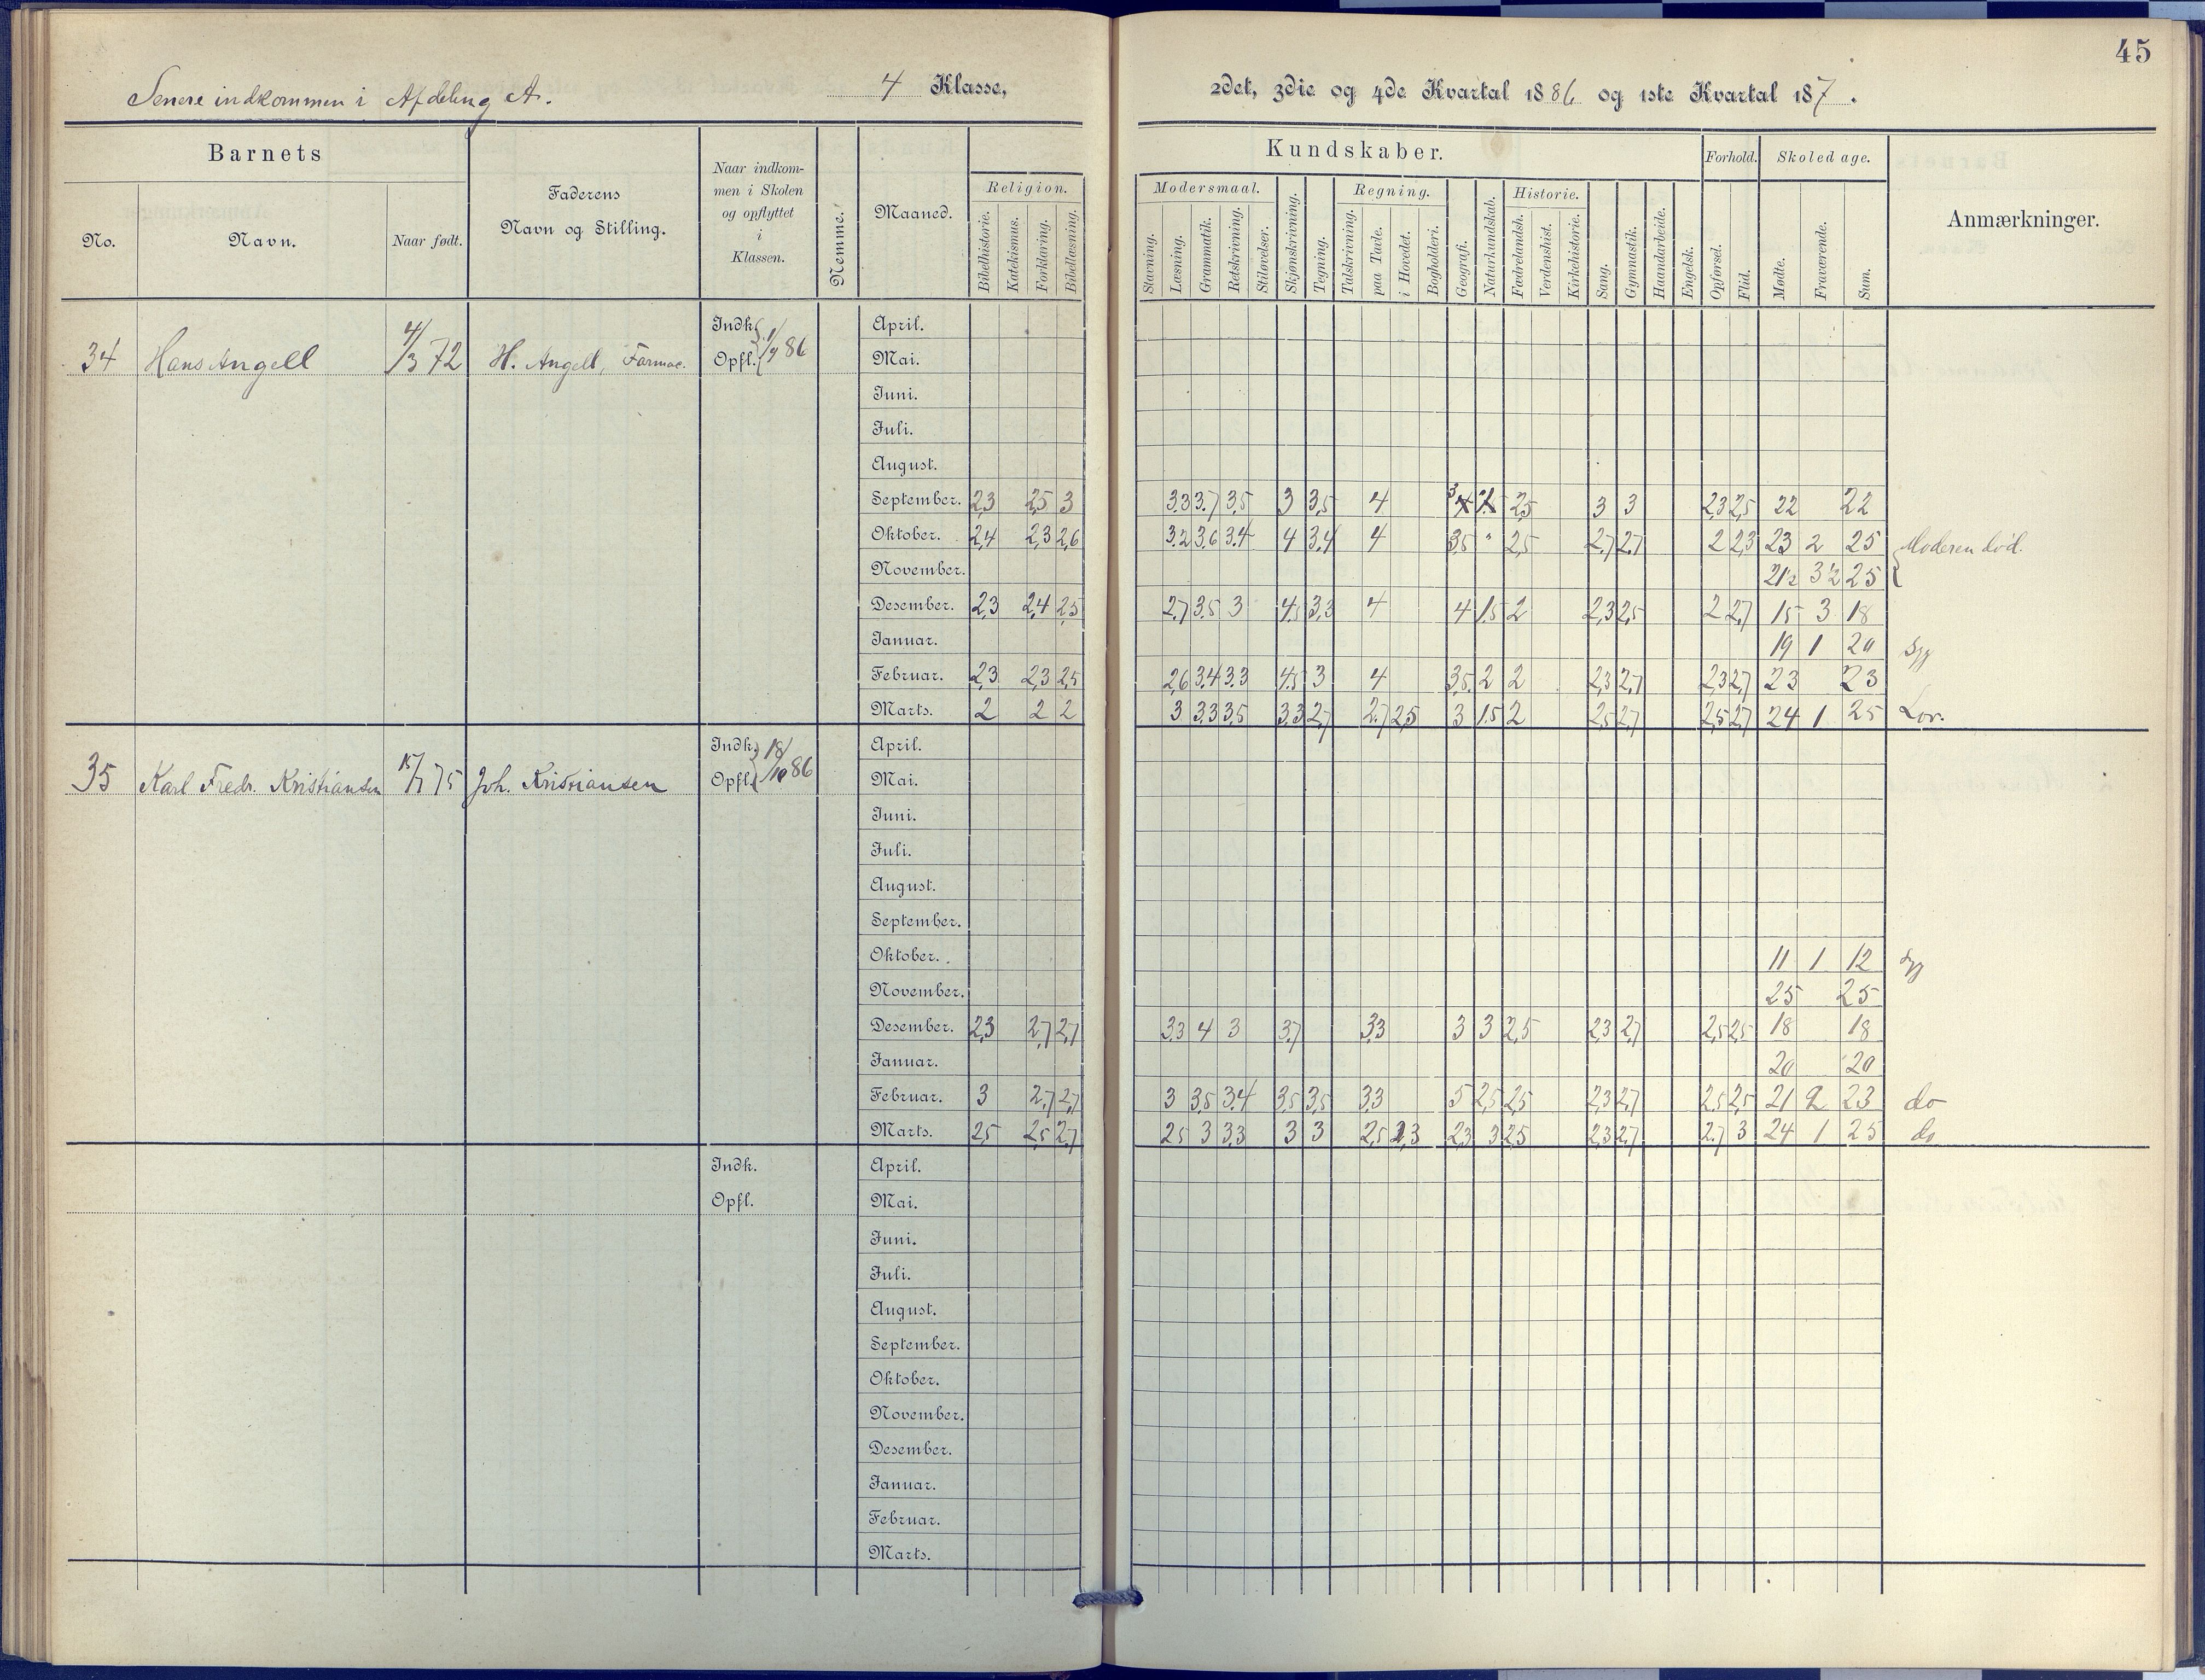 45
Senere indkommen i Afdeling A.
4 Klasse,
2det, 3die og 4de Kvartal 1886 og 1ste Kvartal 187.
Barnets
No.
Navn.
Naar født.
Faderens
Navn og Stilling.
Naar indkom-
men i Skolen
og opflyttet
i
Klassen.
Nemme.
Maaned.
Religion.
Bibelhistorie.
Katekismus.
Forklaring.
Bibellæsning.
Kundskaber.
Modersmaal.
Stavning.
Læsning.
Grammatik.
Retskrivning.
Stiløvelser.
Skjønskrivning.
Tegning.
Regning.
Talskrivning.
paa Tavle.
i Hovedet.
Bogholderi.
Geografi.
Naturkundskab.
Historie.
Fædrelandsh.
Verdenshist.
Kirkehistorie.
Sang.
Gymnastik.
Haandarbeide.
Engelsk.
Forhold.
Opførsel.
Flid.
Skoledage.
Mødte.
Fraværende.
Sum.
Anmærkninger.
34 Hans Angell 4/3 72 H. Angell, Farmac.
Indk. Opfl. 1/9 86
April.
Mai.
Juni.
Juli.
August.
September. 2,3 2,5 3 3,3 3,7 3,5 3 3,5 4 2,5 3 3 2,3 2,5 22 22
Oktober. 2,4 2,3 2,6 3,2 3,6 3,4 4 3,4 4 3,5 " 2,5 2,7 2,7 2 2,3 23 2 25 Moderen død.
November. 21½ 3½ 25
Desember. 2,3 2,4 2,5 2,7 3,5 3 4,5 3,3 4 4 1,5 2 2,3 2,5 2 2,7 15 3 18
Januar. 19 1 20 Syg
Februar. 2,3 2,3 2,5 2,6 3,4 3,3 4,5 3 4 3,5 2 2 2,3 2,7 2,3 2,7 23 23
Marts. 2 2 2 3 3,3 3,5 3,3 2,7 2,7 2,5 3 1,5 2 2,5 2,7 2,5 2,7 24 1 25 Lov.
35 Karl Fredr. Kristiansen 15/7 75 Joh. Kristiansen
Indk. Opfl. 18/10 86
April.
Mai.
Juni.
Juli.
August.
September.
Oktober. 11 1 12 Syg
November. 25 25
Desember. 2,3 2,7 2,7 3,3 4 3 3,7 3,3 3 3 2,5 2,3 2,7 2,5 2,5 18 18
Januar. 20 20
Februar. 3 2,7 2,7 3 3,5 3,4 3,5 3,5 3,3 5 2,5 2,5 2,3 2,7 2,5 2,5 21 2 23 do
Marts. 2,5 2,5 2,7 2,5 3 3,3 3 3 2,5 2,3 2,3 3 2,5 2,3 2,7 2,7 3 24 1 25 do
Indk.
Opfl.
April.
Mai.
Juni.
Juli.
August.
September.
Oktober.
November.
Desember.
Januar.
Februar.
Marts.